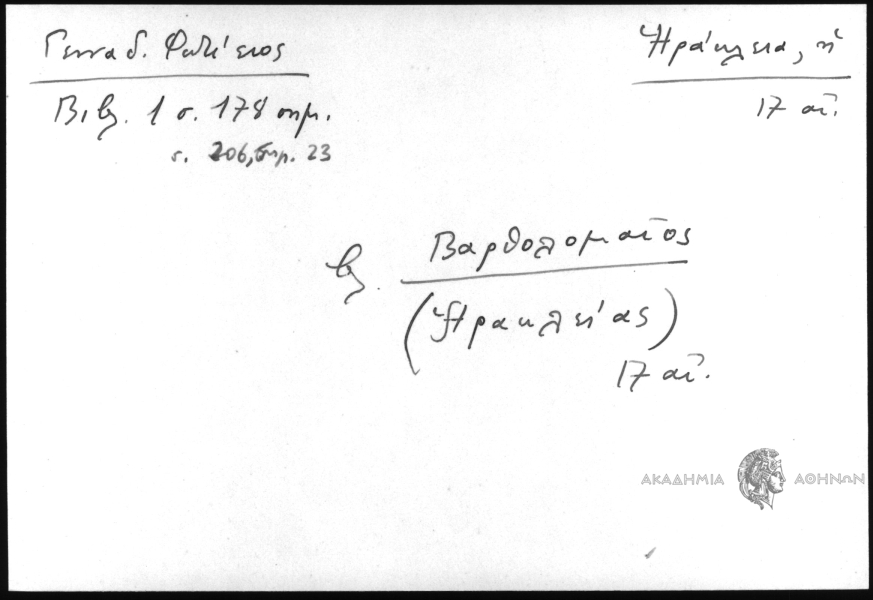 Γενναδ. Φωτίειος
Βιβ. 1 σ. 178 σημ.
σ. 206, σημ. 23
Ἡράκλεια, ἡ
17 αἰ.
βλ. Βαρθολομαῖος
(Ἡρακλείας)
17 αἰ.
ΑΚΑΔΗΜΙΑ ΑΘΗΝΩΝ